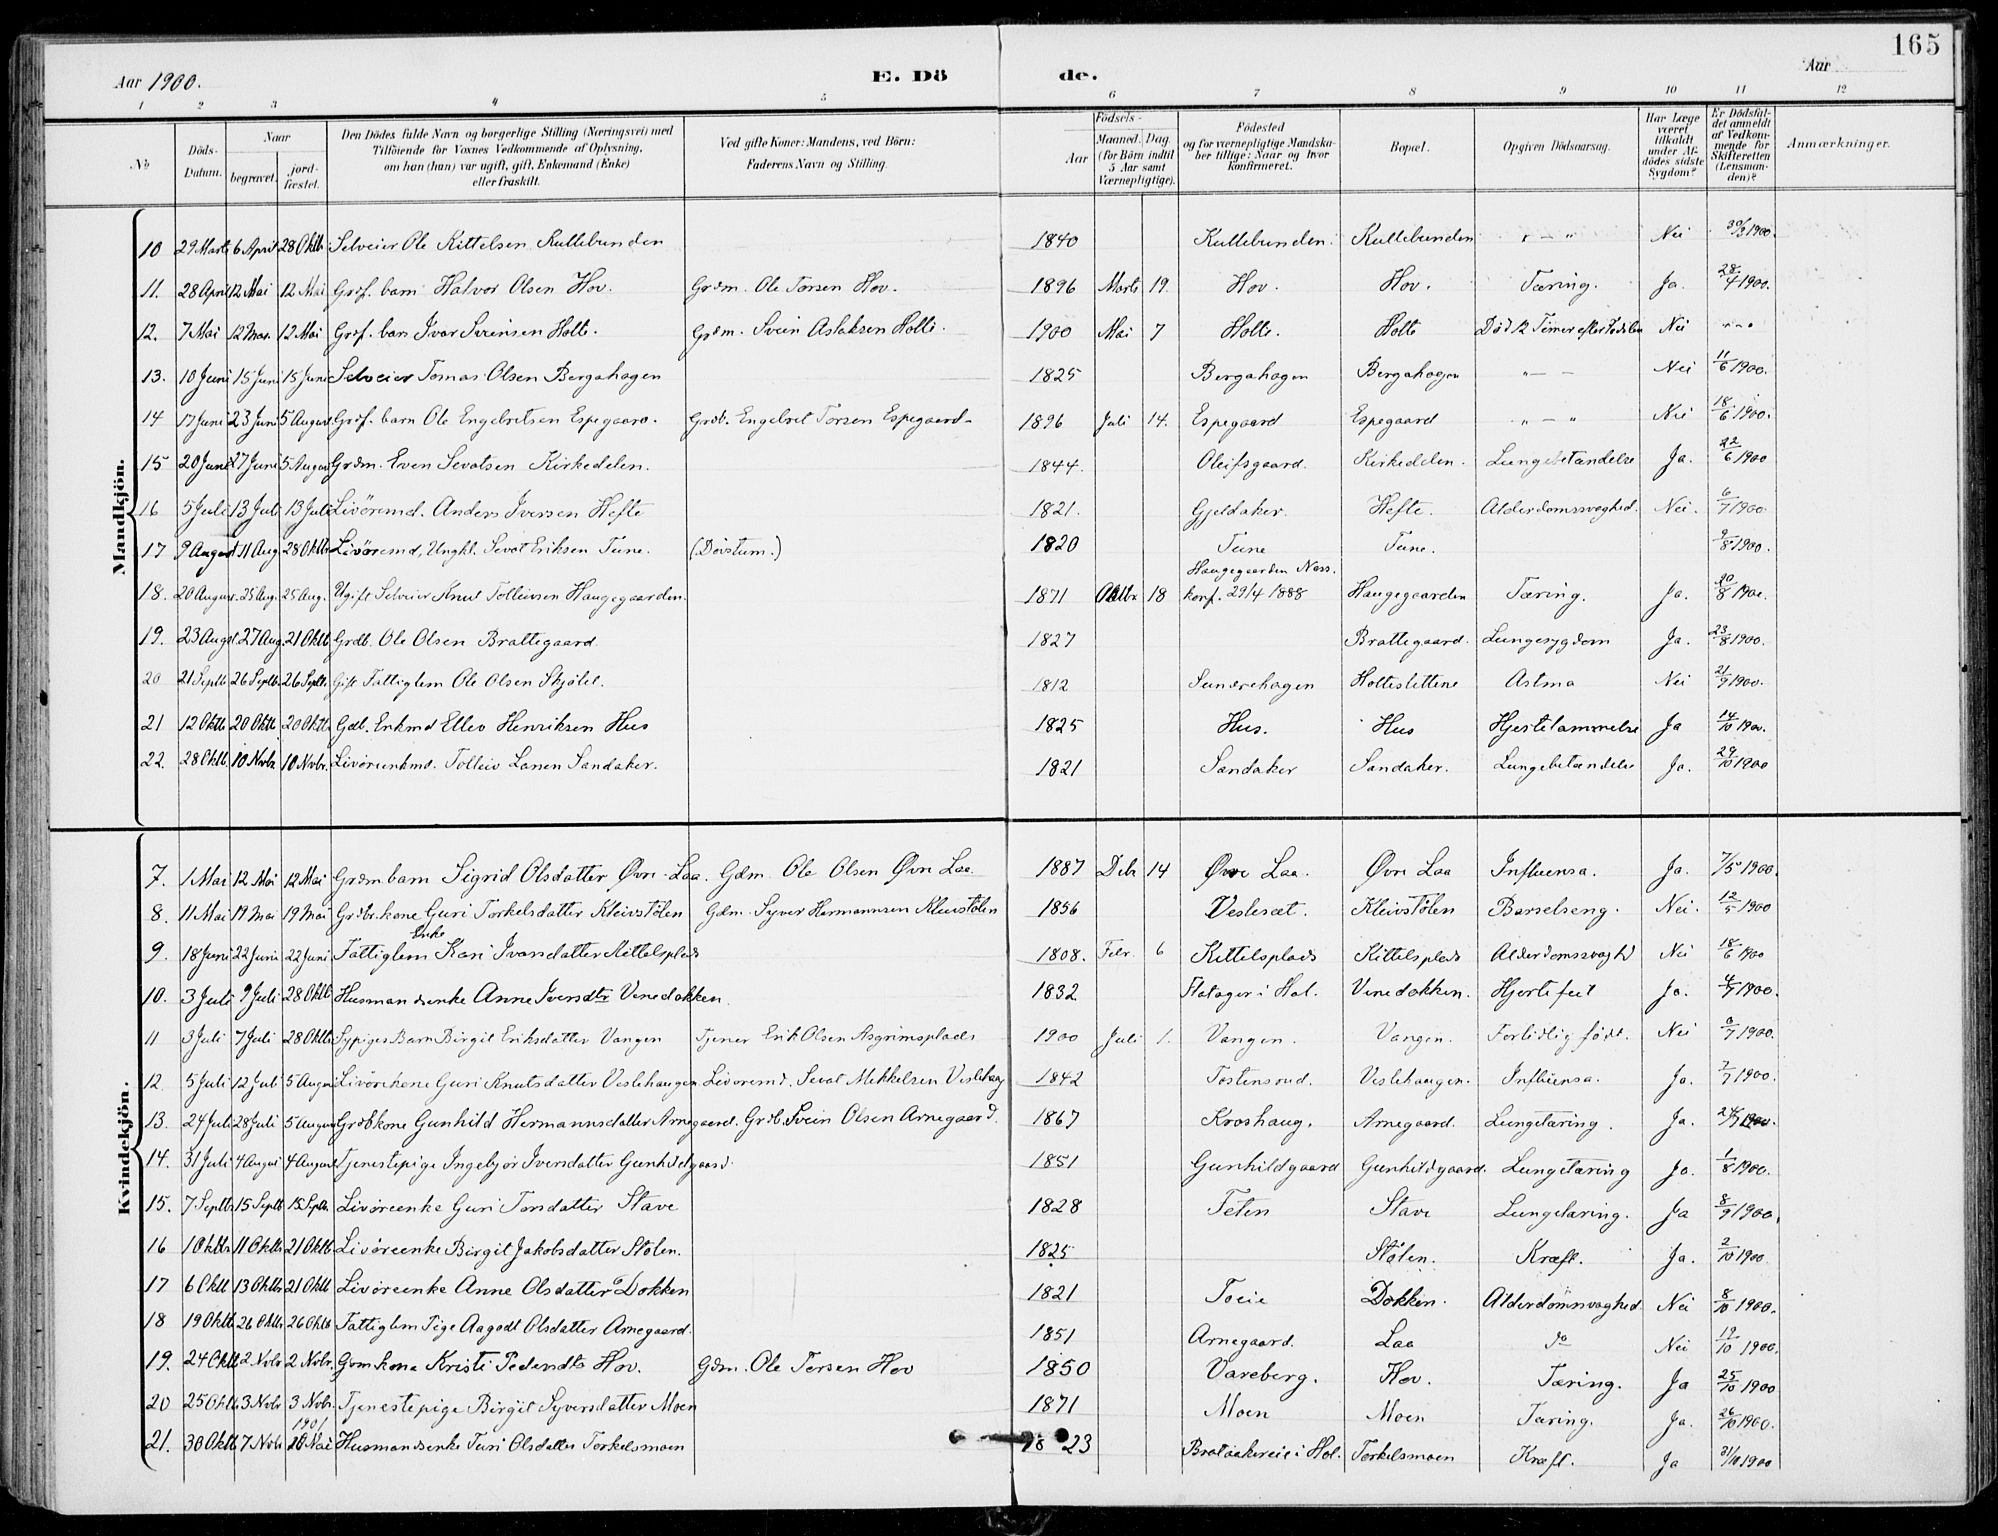 165
Aar 1900. E. Dö de. Aar
1 2 3 4 5 6 7 8 9 10 11 12
No
Döds-Datum.
Naar begravet. jord-fæstet.
Den Dödes fulde Navn og borgerlige Stilling (Næringsvei) med Tilföiende for Voxnes Vedkommende af Oplysning, om han (hun) var ugift, gift, Enkemand (Enke) eller fraskilt.
Ved gifte Koner: Mandens, ved Börn: Faderens Navn og Stilling.
Födsels- Aar Maaned. Dag. (for Börn indtil 5 Aar samt Værnepligtige).
Födested og for værnepligtige Mandskaber tillige: Naar og hvor konfirmeret.
Bopæl.
Opgiven Dödsaarsag.
Har Læge været tilkaldt under Afdödes sidste Sygdom?
Er Dödsfaldet anmeldt af Vedkommende for Skifteretten (Lensmanden)?
Anmærkninger.
Mandkjön.
10 29 Marts 6 April 28 Oktb Selveier Ole Kittelsen Kullebunden 1840 Kullebunden. Kullebunden " — " Nei 30/3 1900.
11. 28 April 12 Mai 12 Mai Grdf. barn Halvor Olsen Hov. Grdm. Ole Torsen Hov. 1896 Marts 19. Hov. Hov. Tæring. Ja. 28/4 1900.
12. 7 Mai 12 Mai 12 Mai Grdf. barn Ivar Sveinsen Holte. Grdm. Svein Aslaksen Holte. 1900 Mai 7 Holte. Holte Död 12 Timer efter Födselen Nei " — "
13. 10 Juni 15 Juni 15 Juni Selveier Tomas Olsen Bergahagen 1825 Bergahagen Bergahagen " — — Nei 11/6 1900.
14 17 Juni 23 Juni 5 August Grdf. barn Ole Engebretsen Espegaard. Grdb. Engebret Torsen Espegaard. 1896 Juli 14. Espegaard Espegaard " — " Nei 18/6 1900.
15 20 Juni 27 Juni 5 August Grdm. Even Sevatsen Kirkedelen. 1844. Oleifsgaard. Kirkedelen. Lungebetændelse Ja. 22/6 1900
16 5 Juli 13 Juli 13 Juli Livöremd. Anders Iversen Hefte 1821. Gjeldaker. Hefte. Alderdomssvaghed. Nei. 6/7 1900.
17 9 August 11 Aug. 28 Oktb Livöremd, Ungkl. Sevat Eriksen Tune. (Dövstum.) 1820 Tune Tune. 9/8 1900.
18. 20 August. 25 Aug. 25 Aug. Ugift Selveier Knut Tolleivsen Haugegaarden. 1871 Oktbr 18 Haugegaarden Næss. konf. 29/4 1888 Haugegaarden Tæring. Ja. 20/8 1900.
19. 23 Augst. 27 Aug. 21 Oktb Grdb. Ole Olsen Brattegaard. 1827 Brattegaard. Lungesygdom Ja. 23/8 1900.
20 21 Septb. 26 Septb. 26 Septb. Gift Fattiglem Ole Olsen Skjölil. 1812 Sundrehagen Holteslettene Astma Nei 21/9 1900.
21 12 Oktb 20 Oktb 20 Oktb. Gdb. Enkmd Ellev Henriksen Hus 1825 Hus. Hus Hjertelammelse Ja 14/10 1900.
22. 28 Oktb. 10 Nvbr 10 Nvbr. Livöreenkmd. Tolleiv Larsen Sandaker. 1821 Sandaker Sandaker. Lungebetændelse Ja. 29/10 1900
Kvindekjön.
7. 1 Mai 12 Mai 12 Mai Grdmbarn Sigrid Olsdatter Øvre-Laa. Gdm. Ole Olsen Øvre Laa 1887 Debr 14 Øvre Laa. Øvre Laa Influensa. Ja. 7/5 1900.
8. 11 Mai 19 Mai 19 Mai Grdbr.kone Guri Torkelsdatter Kleivstölen Gdm. Syver Hermannsen Kleivstölen 1856 Veslesæt. Kleivstölen Barselseng. Nei. 12/5 1900
9. 18 Juni 22 Juni 22 Juni Fattiglem Enke Kari Ivarsdatter Kittelsplads 1808. Febr. 6 Kittelsplads Kittelsplads Alderdomssvaghd Nei 18/6 1900
10. 3 Juli 9 Juli 28 Oktb Husmandsenke Anne Iversdtr Venedokken. 1832 Flatager i Hol. Venedokken. Hjertefeil Ja. 4/7 1900.
11 3 Juli 7 Juli 28 Oktb Sypiges Barn Birgit Eriksdatter Vangen Tjener Erik Olsen Asgrimsplads 1900 Juli 1. Vangen. Vangen. Fortidlig födt. Nei 6/7 1900.
12. 5 Juli 12 Juli 5 August Livörekone Guri Knutsdatter Veslehaugen Livöremd. Sevat Mikkelsen Veslehaug 1842 Tostensrud. Veslehaugen. Influensa. Ja. 7/7 1900.
13. 24 Juli 28 Juli 5 August Grdbkone Gunhild Hermannsdatter Arnegaard. Grdb. Svein Olsen Arnegaard. 1867 Kroshaug. Arnegaard. Lungetæring. Ja. 24/7 1900.
14. 31 Juli 4 August 4 August Tjenestepige Ingebjör Iversdatter Gunhildgaard. 1851 Gunhildgaard Gunhildgaard. Lungetæring Ja. 1/8 1900.
15. 7 Septb. 15 Septb 15 Septb. Livöreenke Guri Torsdatter Stave 1828 Teten Stave Lungetæring. Ja 8/9 1900.
16 1 Oktbr 11 Oktbr 21 Oktb Livöreenke Birgit Jakobsdatter Stölen. 1825 Stölen. Kræft. Ja. 2/10 1900.
17 6 Oktb 13 Oktbr 21 Oktb Livöreenke Anne Olsdatter Dokken 1821 Toeie Dokken. Alderdomsvaghed Nei 8/10 1900.
18 19 Oktb 26 Oktbr 26 Oktb Fattiglem Pige Aagodt Olsdatter Arnegaard. 1851 Arnegaard. Laa do Nei 19/10 1900.
19. 24 Oktb 2 Nvbr 2 Nvbr. Grmkone Kristi Pedersdtr Hov. Gdm. Ole Torsen Hov 1850 Vareberg. Hov. Tæring. Ja 25/10 1900
20 25 Oktb 3 Nvbr 3 Nvbr. Tjenestepige Birgit Syversdatter Moen 1871 Moen Moen Tæring. Ja. 26/10 1900.
21. 30 Oktb 7 Nvbr 1901 Mai Husmandsenke Turi Olsdatter Torkelsmoen 1823 Brataakereie i Hol. Torkelsmoen Kræft. Ja 31/10 1900